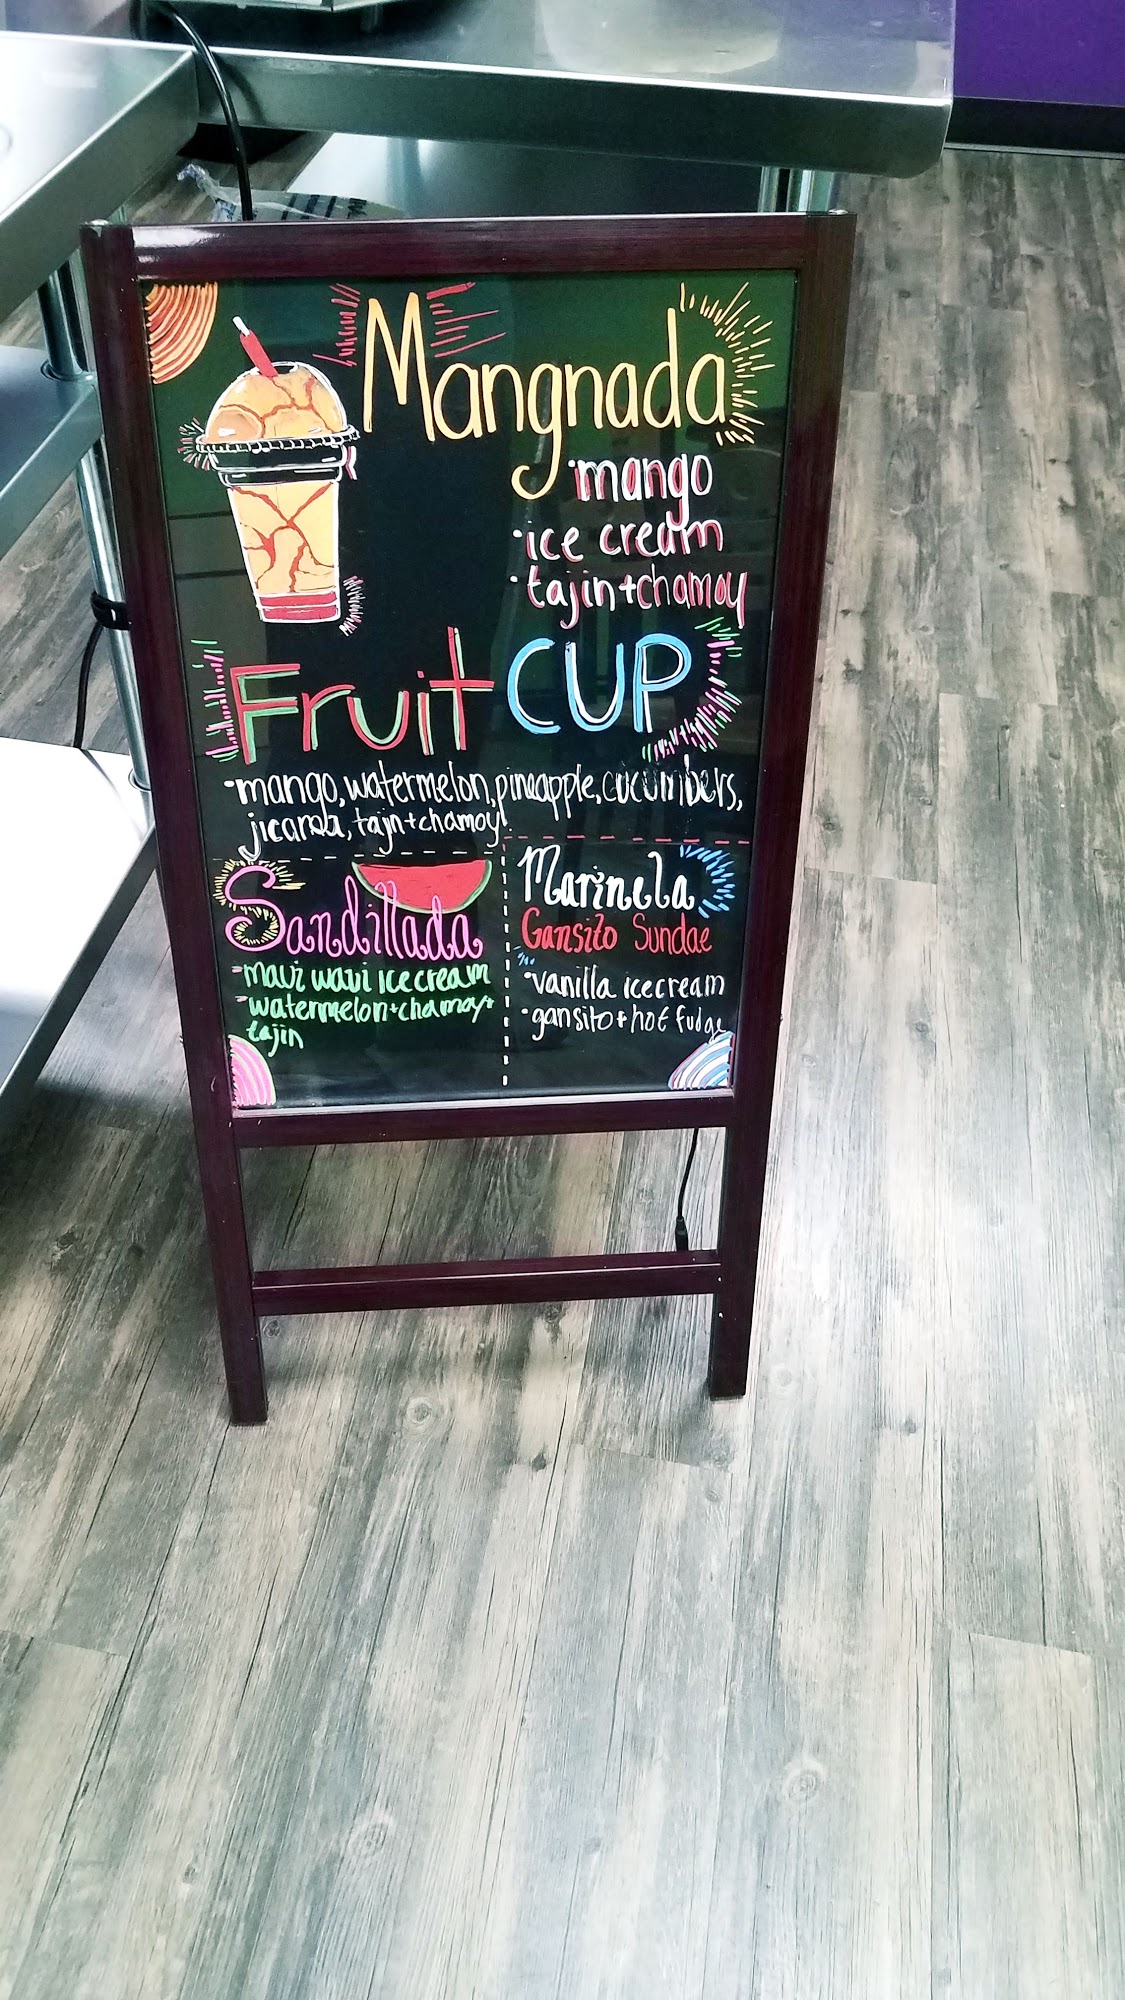 Mangnada
•mango
•ice cream
•tajin+chamoy
Fruit CUP
•mango, watermelon, pineapple, cucumbers,
jicama, tajin+chamoy
Sandillada
-maui waui ice cream
-watermelon+chamoy+
tajin
Marinela
Gansito Sundae
•vanilla icecream
•gansito+hot fudge